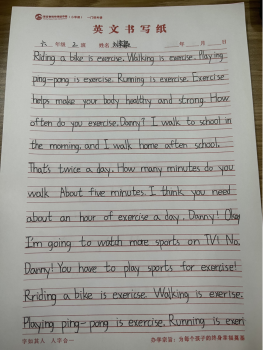 英文书写纸
六 年级 2 班 姓名 年 月 日
Riding a bike is exercise. Walking is exercise. Playing
ping-pong is exercise. Running is exercise. Exercise
helps make your body healthy and strong. How
often do you exercise. Danny? I walk to school in
the morning. and I walk home often school.
That's twice a day. How many minutes do you
walk About five minutes. I think, you need
about an hour of exercise a day, Danny! Okay
I'm going to watch more sports on TV! No.
Danny! You have to play sports for exercise!
Rriding a bike is exericise. Walking is exercise.
Playing ping-pong is exercise. Running is exerci
字如其人 人字合一